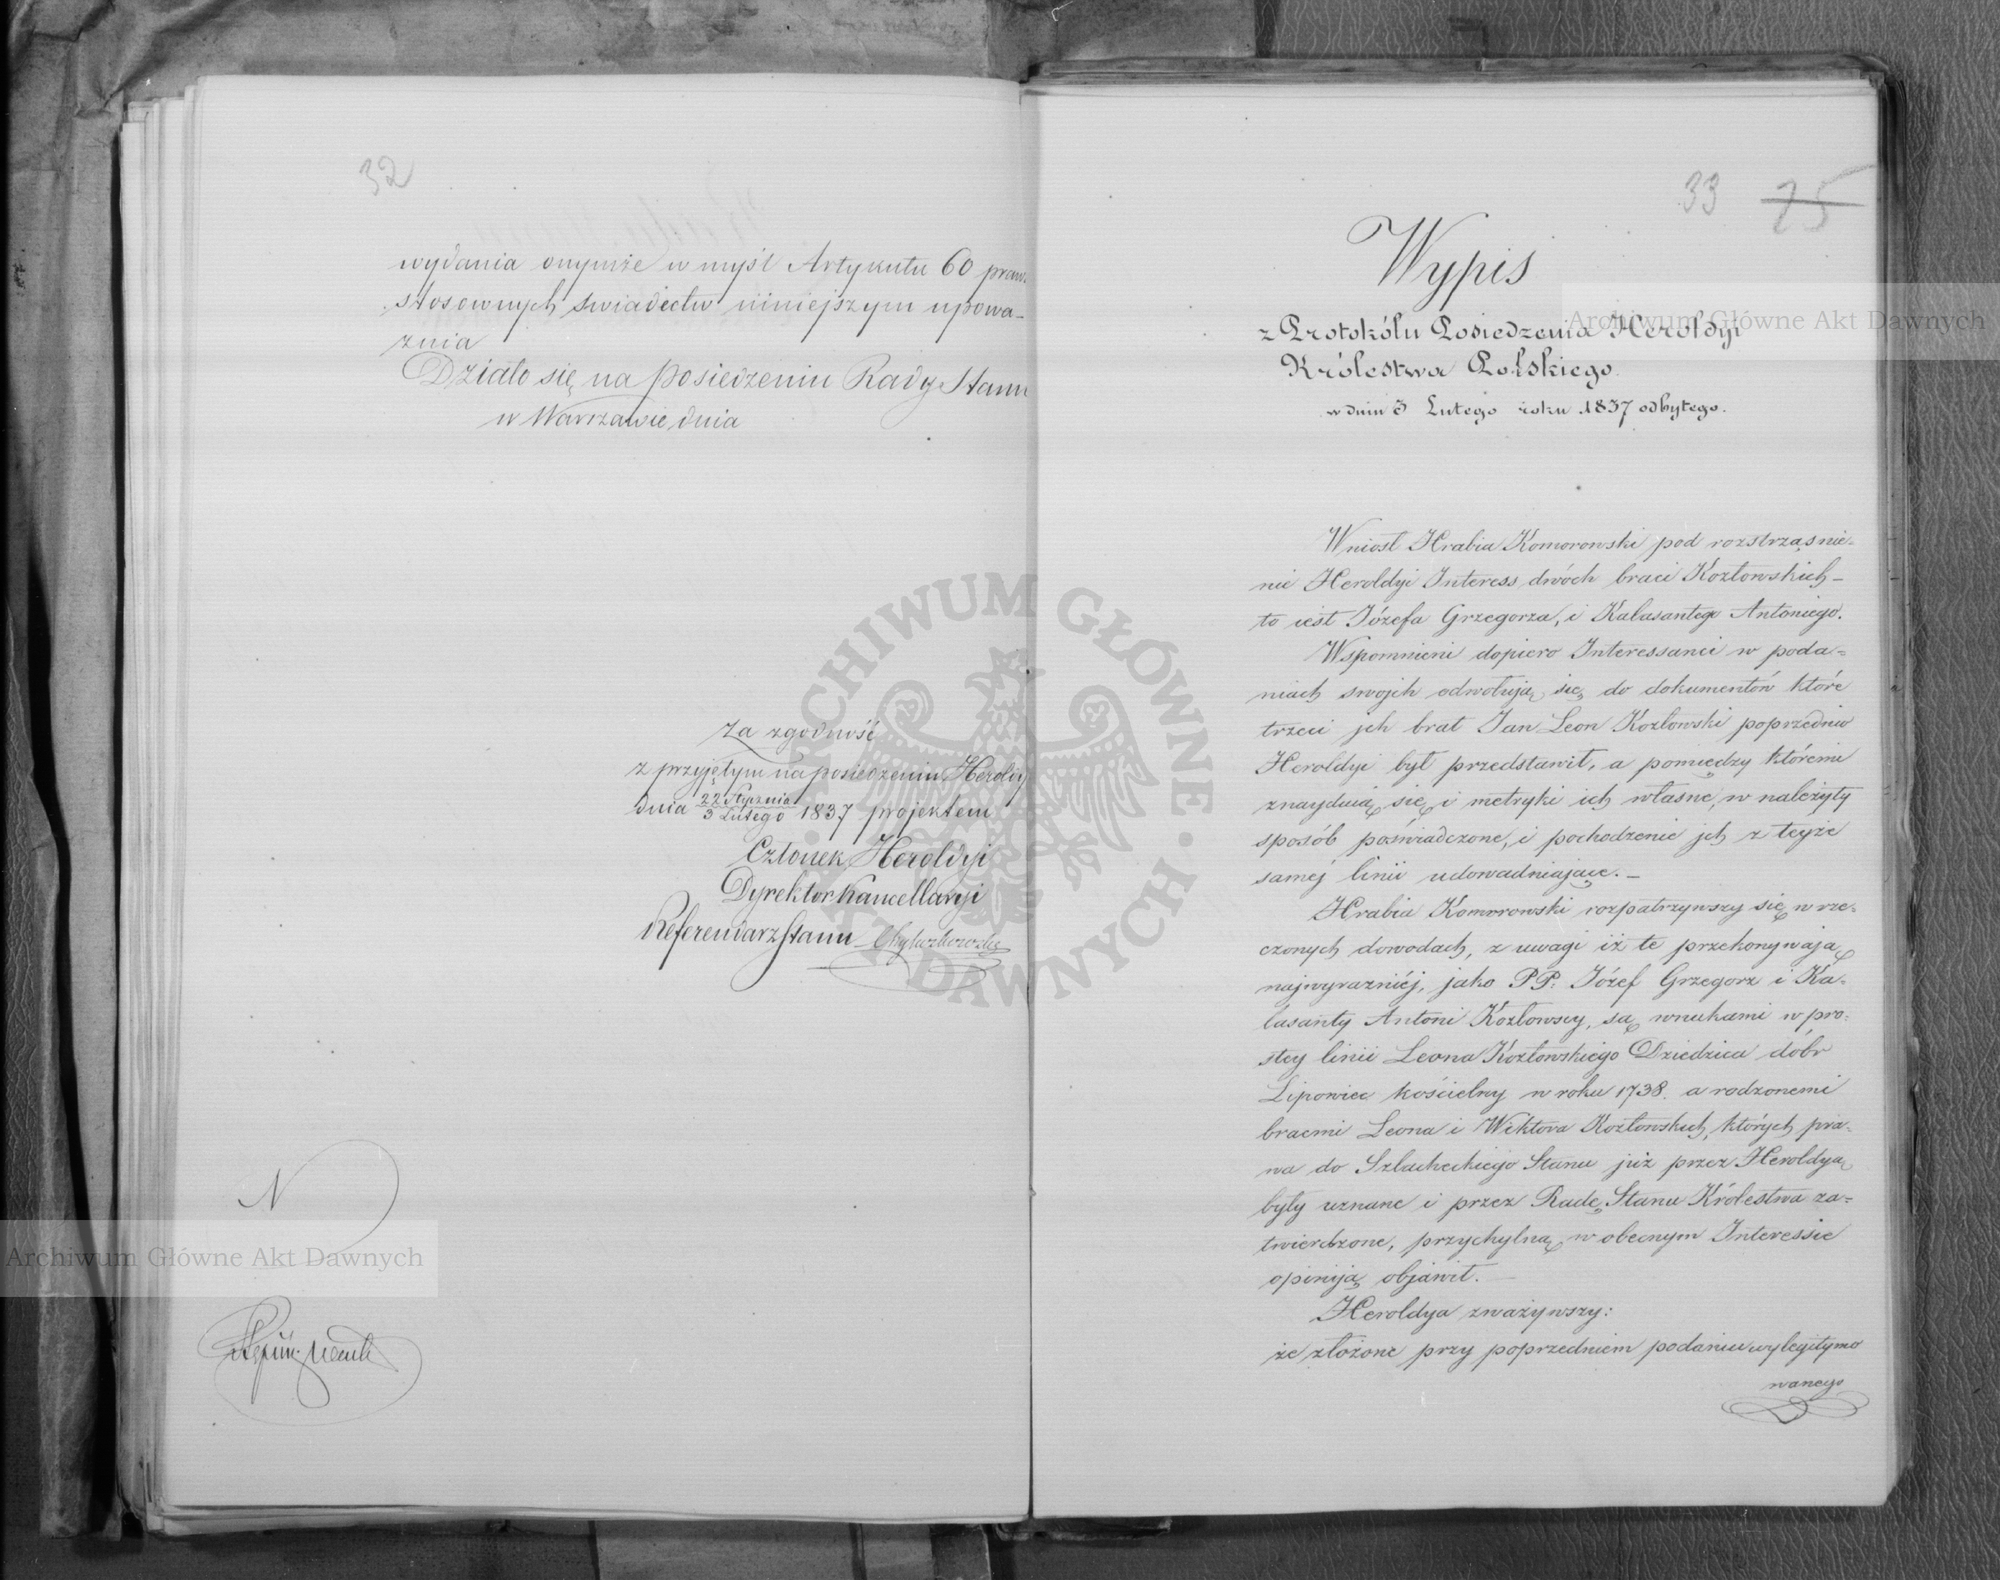 32
wydania onymże w myśl Artykułu 60 prawa
stosownych świadectw niniejszym upowa-
żnia
Działo się na posiedzeniu Rady Stanu
w Warszawie dnia
Za zgodność
z przyjętym na posiedzeniu Heroldyi
dnia 22 Stycznia / 3 Lutego 1837 projektem
Członek Heroldyi
Dyrektor Kancellaryi
Referendarz Stanu
N
33 75
Wypis
z Protokólu Posiedzenia Heroldyi
Królestwa Polskiego
w dniu 3 Lutego roku 1837 odbytego.
Wniosł Hrabia Komorowski pod rozstrząśnie-
nie Heroldyi Interess dwóch braci Kozłowskich –
to iest Józefa Grzegorza, i Kalasantego Antoniego.
Wspomnieni dopiero Interessanci w poda-
niach swojch odwołują się do dokumentów które
trzeci jch brat Jan Leon Kozłowski poprzednio
Heroldyi był przedstawił, a pomiędzy któremi
znayduią się i metryki ich własne, w należyty
sposób poświadczone, i pochodzenie jch z teyże
samej linii udowadniające. –
Hrabia Komorowski rozpatrzywszy się w rze-
czonych dowodach, z uwagi iż te przekonywają
najwyrazniéj, jako PP. Józef Grzegorz i Ka-
lasanty Antoni Kozłowscy, są wnukami w pro-
stey linii Leona Kozłowskiego Dziedzica dóbr
Lipowiec kościelny w roku 1738. a rodzonemi
bracmi Leona i Wiktora Kozłowskich, których pra-
wa do Szlacheckiego Stanu już przez Heroldyą
były uznane i przez Radę Stanu Królestwa za-
twierdzone, przychylną w obecnym Interessie
opiniją objawił. –
Heroldya zważywszy:
że złożone przy poprzedniem podaniu wylegitymo
wanego
Archiwum Główne Akt Dawnych
Archiwum Główne Akt Dawnych
ARCHIWUM GŁÓWNE AKT DAWNYCH